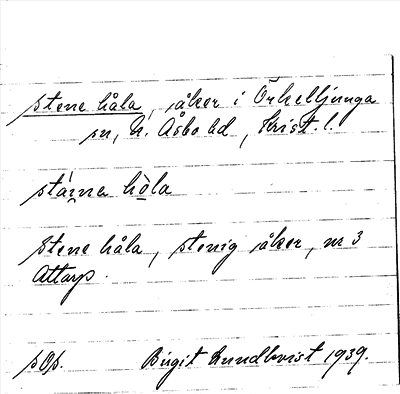 stene håla, åker i Örkelljunga
sn, N. Åsbo hd, Krist. l.
stáina hòla
Stene håla, stenig åker, nr 3
Attarp.
pOp. Birgit Lundkvist 1939.